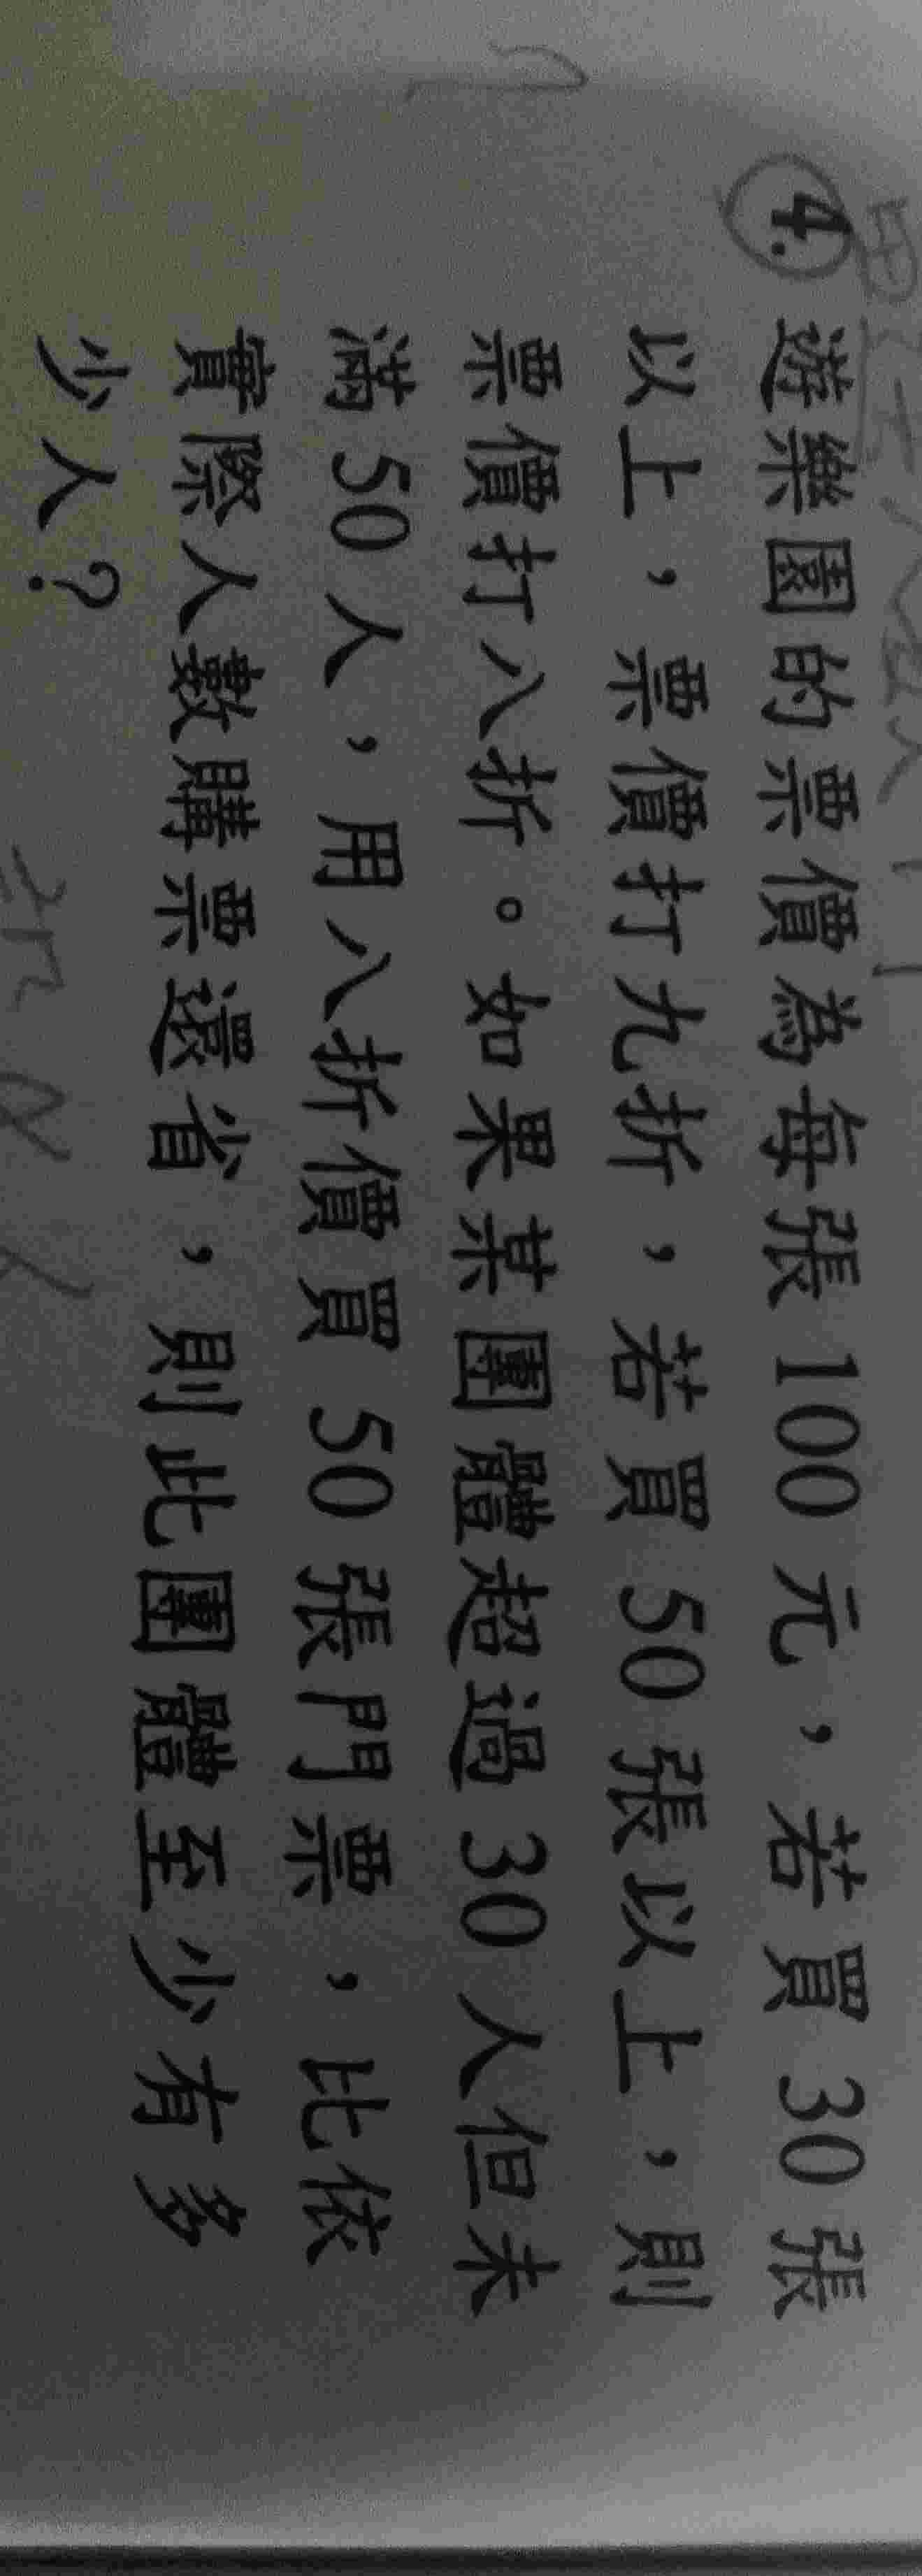 4. 遊樂園的票價為每張 100 元，若買 30 張
以上，票價打九折，若買 50 張以上，則
票價打八折。如果某團體超過 30 人但未
滿 50 人，用八折價買 50 張門票，比依
實際人數購票還省，則此團體至少有多
少人？